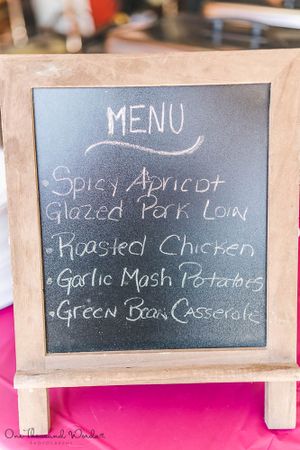 MENU
• Spicy Apricot
Glazed Pork Loin
• Roasted Chicken
• Garlic Mash Potatoes
• Green Bean Casserole
One Thousand Words
PHOTOGRAPHY